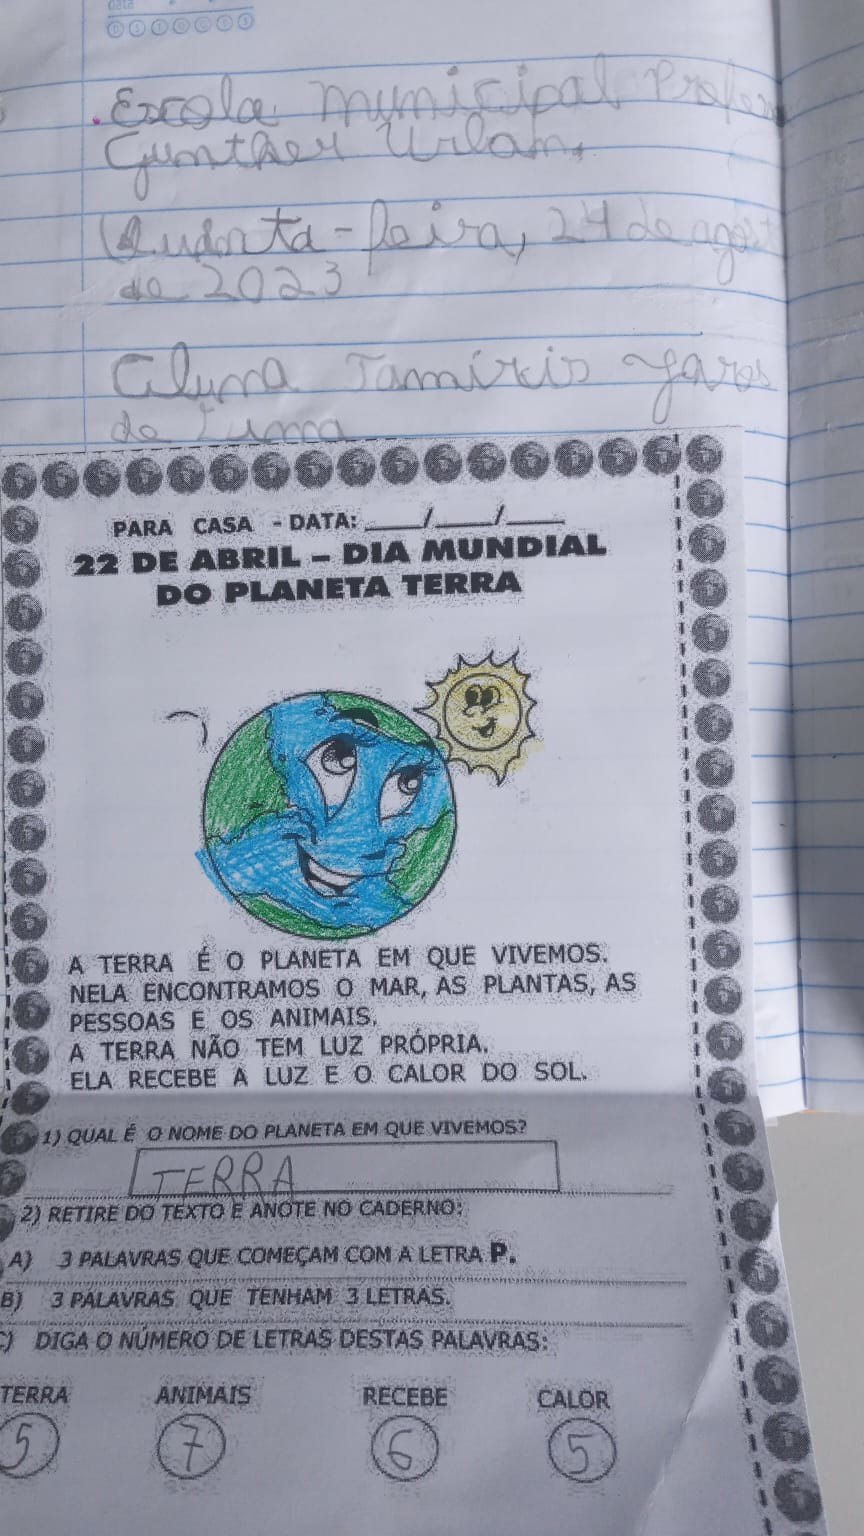 data
D S T Q Q S S
Escola Municipal Profes
Gunther Urban.
Quinta-feira, 24 de agost
de 2023
Aluna Tamíris
de Lima
PARA CASA - DATA: ____/____/____
22 DE ABRIL – DIA MUNDIAL
DO PLANETA TERRA
A TERRA É O PLANETA EM QUE VIVEMOS.
NELA ENCONTRAMOS O MAR, AS PLANTAS, AS
PESSOAS E OS ANIMAIS.
A TERRA NÃO TEM LUZ PRÓPRIA.
ELA RECEBE A LUZ E O CALOR DO SOL.
1) QUAL É O NOME DO PLANETA EM QUE VIVEMOS?
TERRA
2) RETIRE DO TEXTO E ANOTE NO CADERNO:
A) 3 PALAVRAS QUE COMEÇAM COM A LETRA P.
B) 3 PALAVRAS QUE TENHAM 3 LETRAS.
C) DIGA O NÚMERO DE LETRAS DESTAS PALAVRAS:
TERRA ANIMAIS RECEBE CALOR
5 7 6 5